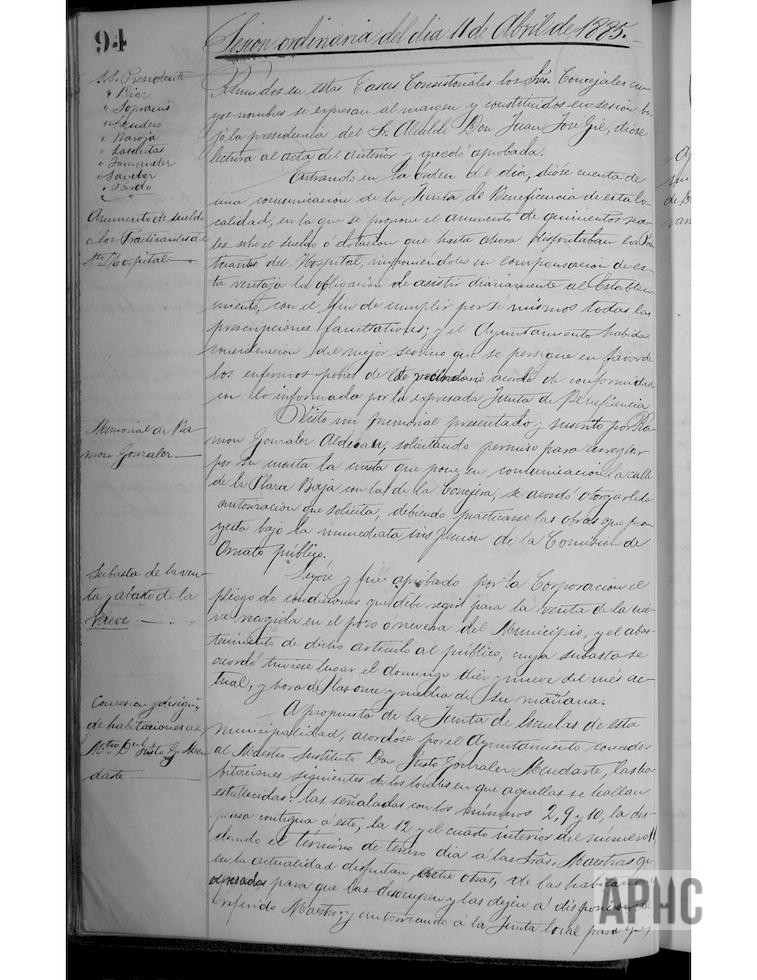 94
Sesión ordinaria del dia 11 de Abril de 1885.
S.S. Presidente
" Biar
" Sopranis
"
" Baroja
"
"
" Sander
" Pardo
Reunidos en estas Casas Consistoriales los Sres. Concejales cu-
yos nombres se expresan al margen y constituidos en sesión ba-
jo la presidencia del Sr. Alcalde Don Juan José Gil, dióse
lectura al acta del anterior y quedó aprobada.
Aumento de sueldo
a los Practicantes de
Sto Hospital
Entrando en la órden del dia, dióse cuenta de
una comunicacion de la Junta de Beneficencia de esta lo-
calidad, en la que se propone el aumento de quinientos rea-
les sobre el sueldo ó dotacion que hasta ahora disfrutaban los Prac-
ticantes del Hospital, imponiendoles en compensacion de es-
ta ventaja la obligacion de asistir diariamente al Estableci-
miento, con el fin de cumplir por sí mismos todas las
prescripciones facultativas; y el Ayuntamiento habida
consideracion del mejor servicio que se persigue en favor de
los enfermos pobres de este vecindario acordó de conformidad
con lo informado por la expresada Junta de Beneficencia
Memorial de Ra-
mon Gonzalez
Visto un memorial presentado y suscrito por Ra-
mon Gonzalez Aldecoa, solicitando permiso para arreglar
por su cuenta la cuesta que pone en comunicacion la calle
de la Plaza Baja con la de la Conejera, se acordó otorgarle la
autorizacion que solicita, debiendo practicarse las obras que pro-
yecta bajo la inmediata inspeccion de la Comision de
Ornato público.
Subasta de la ven-
ta y abasto de la
nieve
Leyóse y fué aprobado por la Corporacion el
pliego de condiciones que debe regir para la venta de la nie-
ve recogida en el pozo ó nevera del Municipio, y el abas-
tecimiento de dicho artículo al público, cuya subasta se
acordó tuviese lugar el domingo diez y nueve del més ac-
tual, y hora de las once y media de su mañana.
Concesion y design
de habitaciones al
Mtro Dn Justo Gz Men-
daste
A propuesta de la Junta de Escuelas de esta
municipalidad, acordóse por el Ayuntamiento conceder
al Maestro sustituto Don Justo Gonzalez Mendaste, las ha-
bitaciones siguientes de los locales en que aquellas se hallan
establecidas: las señaladas con los números 2, 9 y 10, la des-
pensa contigua á este, la 12 y el cuarto interior del número 11
dando el término de tercero dia á las Sras. Maestras que
en la actualidad disfrutan, entre otras, de las habitaciones
expresadas para que las desocupen y las dejen a disposicion del
referido Maestro; y autorizando á la Junta local para que
APHC